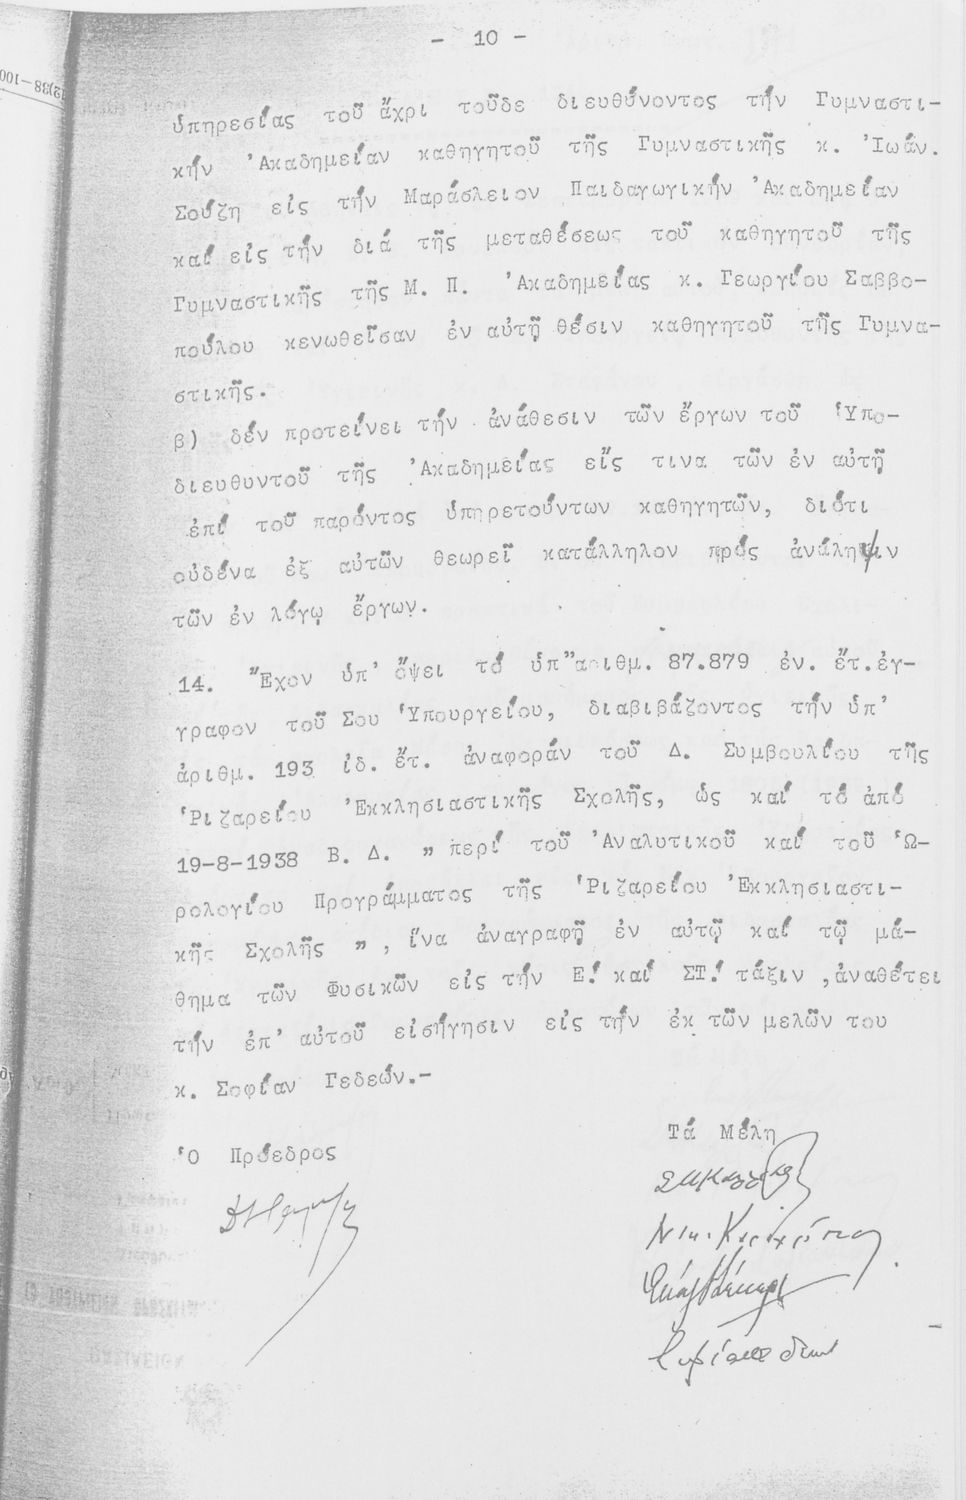 - 10 -
ὑπηρεσίας τοῦ ἄχρι τοῦδε διευθύνοντος τήν Γυμναστι-
κήν Ἀκαδημείαν καθηγητοῦ τῆς Γυμναστικῆς κ. Ἰωάν.
Σούζη εἰς τήν Μαράσλειον Παιδαγωγικήν Ἀκαδημείαν
καί εἰς τήν διά τῆς μεταθέσεως τοῦ καθηγητοῦ τῆς
Γυμναστικῆς τῆς Μ. Π. Ἀκαδημείας κ. Γεωργίου Σαββο-
πούλου κενωθεῖσαν ἐν αὐτῇ θέσιν καθηγητοῦ τῆς Γυμνα-
στικῆς.
β) δέν προτείνει τήν ἀνάθεσιν τῶν ἔργων τοῦ Ὑπο-
διευθυντοῦ τῆς Ἀκαδημείας εἴς τινα τῶν ἐν αὐτῇ
ἐπί τοῦ παρόντος ὑπηρετούντων καθηγητῶν, διότι
οὐδένα ἐξ αὐτῶν θεωρεῖ κατάλληλον πρός ἀνάληψιν
τῶν ἐν λόγῳ ἔργων.
14. Ἔχον ὑπ' ὄψει τό ὑπ" αριθμ. 87.879 ἐν. ἔτ. ἐγ-
γραφον τοῦ Σου Ὑπουργείου, διαβιβάζοντος τήν ὑπ'
ἀριθμ. 193 ἰδ. ἔτ. ἀναφοράν τοῦ Δ. Συμβουλίου τῆς
Ῥιζαρείου Ἐκκλησιαστικῆς Σχολῆς, ὡς καί τό ἀπό
19-8-1938 Β. Δ. " περί τοῦ Ἀναλυτικοῦ καί τοῦ Ὡ-
ρολογίου Προγράμματος τῆς Ῥιζαρείου Ἐκκλησιαστι-
κῆς Σχολῆς ", ἵνα ἀναγραφῇ ἐν αὐτῷ καί τῷ μά-
θημα τῶν Φυσικῶν εἰς τήν Ε! καί ΣΤ! τάξιν, ἀναθέτει
τήν ἐπ' αὐτοῦ εἰσήγησιν εἰς τήν ἐκ τῶν μελῶν του
κ. Σοφίαν Γεδεών.-
Ὁ Πρόεδρος
Τά Μέλη